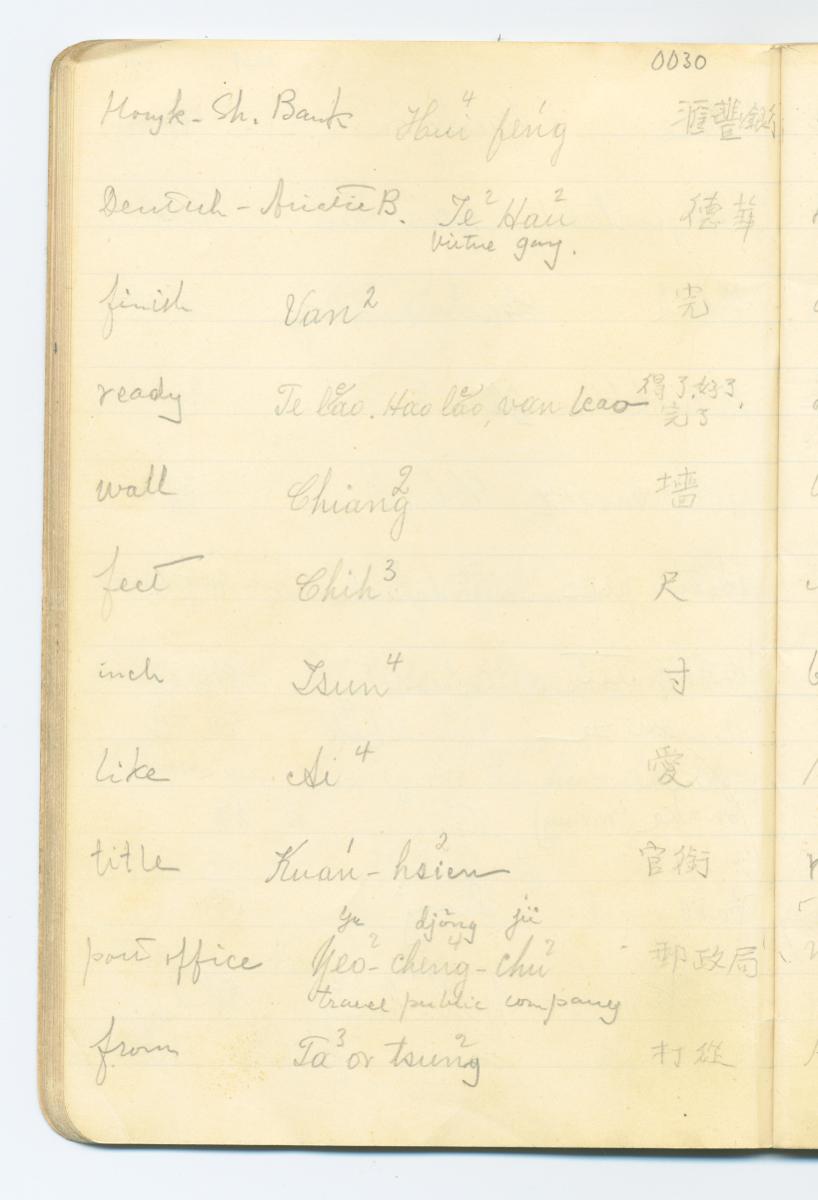 0030
Hongk-Sh. Bank Hui⁴ feng 滙豐銀行
Deutsch-Asiatic B. Te² Hau² 德華
virtue gay.
finish Van² 完
ready Te lăo. Hao lăo, van 得了,好了,
完了
wall Chiang² 墻
feet Chih³ 尺
inch Tsun⁴ 寸
like Ai⁴ 愛
title Kuan¹-hsien² 官銜
yu djöng jü
post office Yeo²-cheng⁴-chu² 郵政局
travel public company
from Ta³ or tsung² 打 從